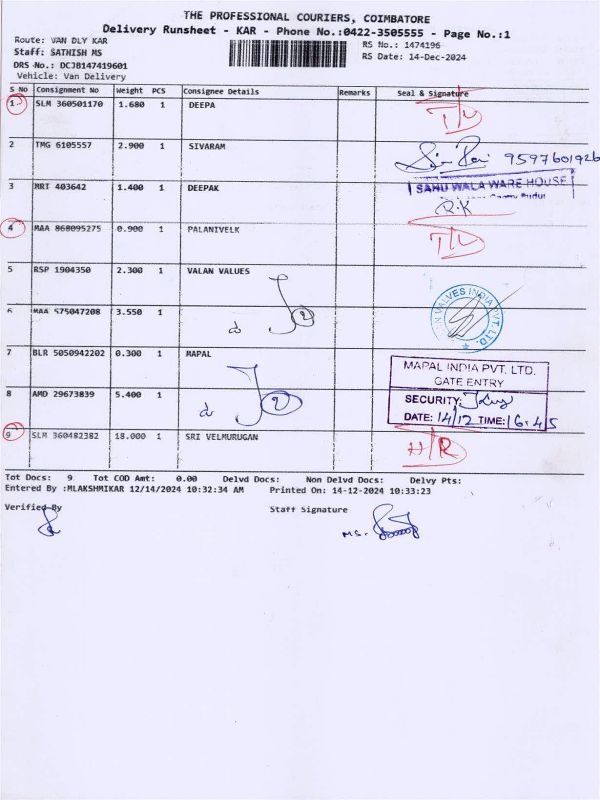 THE PROFESSIONAL COURIERS, COIMBATORE
Delivery Runsheet - KAR - Phone No.:0422-3505555 - Page No.:1
Route: VAN DLY KAR
RS No.: 1474196
Staff: SATHISH MS
RS Date: 14-Dec-2024
DRS No.: DCJB147419601
Vehicle: Van Delivery
S No Consignment No Weight PCS Consignee Details Remarks Seal & Signature
1 SLM 360501170 1.680 1 DEEPA
2 TMG 6105557 2.900 1 SIVARAM 9597601926
3 MRT 403642 1.400 1 DEEPAK SAHU WALA WARE HOUSE
R.K
4 MAA 868095275 0.900 1 PALANIVELK
5 RSP 1904350 2.300 1 VALAN VALUES
VALVES INDIA PVT. LTD.
6 MAA 575047208 3.550 1
7 BLR 5050942202 0.300 1 MAPAL
MAPAL INDIA PVT. LTD.
GATE ENTRY
8 AMD 29673839 5.400 1
SECURITY:
DATE: 14/12 TIME: 16.45
9 SLM 360482382 18.000 1 SRI VELMURUGAN
Tot Docs: 9 Tot COD Amt: 0.00 Delvd Docs: Non Delvd Docs: Delvy Pts:
Entered By :MLAKSHMIKAR 12/14/2024 10:32:34 AM Printed On: 14-12-2024 10:33:23
Verified By
Staff Signature
MS.